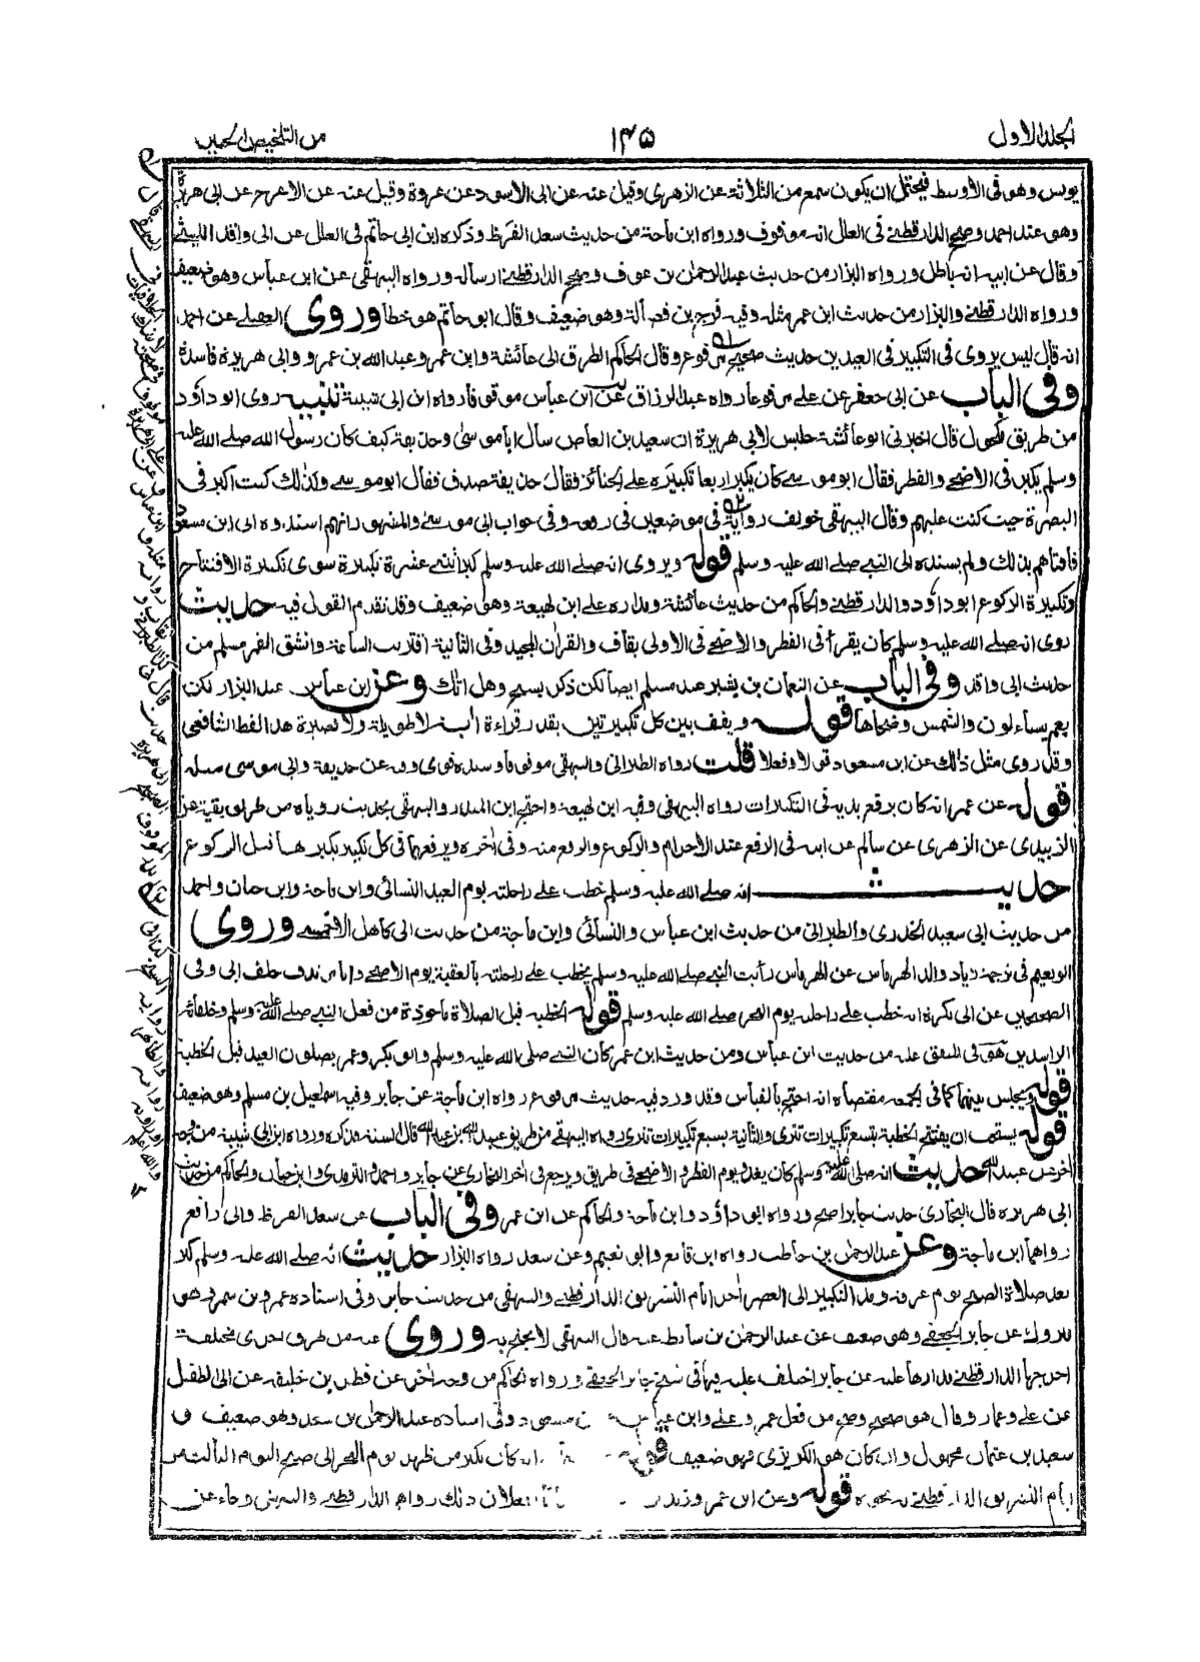 الجلد الاول
۱۴۵
من التلخيص الحبير
يونس وهو فى الأوسط فيحتمل ان يكون سمع من الثلاثة عن الزهرى وقيل عنه عن ابى الاسود عن عروة وقيل عنه عن الاعرج عن ابى هريرة
وهو عند احمد وصحح الدارقطنے فى العلل انه موقوف ورواه ابن ماجة من حديث سعد القرظ وذكره ابن ابى حاتم فى العلل عن ابى واقد الليثے
وقال عن ابيه انه باطل ورواه البزار من حديث عبد الرحمٰن بن عوف وصحح الدارقطنے ارساله ورواه البيهقى عن ابن عباس وهو ضعيف
ورواه الدارقطنے والبزار من حديث ابن عمر مثله وفيه فرج بن فضالة وهو ضعيف وقال ابو حاتم هو خطأ وروى العقيلے عن احمد
انه قال ليس يروى فى التكبير فى العيدين حديث صحيح مرفوع وقال الحاكم الطرق الى عائشة وابن عمر وعبد الله بن عمرو وابى هريرة فاسدة
وفى الباب عن ابى جعفر عن على مرفوعا رواه عبد الرزاق عن ابن عباس موقوفا رواه ابن ابى شيبة تنبيه روى ابو داؤد
من طريق مكحول قال اخبرنى ابو عائشة جليس لابى هريرة ان سعيد بن العاص سال ابا موسٰى وحذيفة كيف كان رسول الله صلے الله عليه
وسلم يكبر فى الاضحے والفطر فقال ابو موسے كان يكبر اربعا تكبيره علے الجنائز فقال حذيفة صدق فقال ابو موسے وكذلك كنت اكبر فى
البصرة حيث كنت عليهم وقال البيهقى خولف رواية فى موضعين فى رفعه وفى جواب ابى موسے والمشهور انهم اسندوه الى ابن مسعود
فافتاهم بذلك ولم يسنده الى النبے صلے الله عليه وسلم قوله ويروى انه صلے الله عليه وسلم كبر اثنتے عشرة تكبيرة سوى تكبيرة الافتتاح
وتكبيرة الركوع ابو داؤد والدارقطنے والحاكم من حديث عائشة ومداره علے ابن لهيعة وهو ضعيف وقد تقدم القول فيه حديث
روى انه صلے الله عليه وسلم كان يقرأ فى الفطر والاضحے فى الاولى بقاف والقرآن المجيد وفى الثانية اقتربت الساعة وانشق القمر مسلم من
حديث ابى واقد وفى الباب عن النعمان بن بشير عند مسلم ايضا لكن ذكر بسبح وهل اتٰك وعن ابن عباس عند البزار لكن
بعم يتساءلون والشمس وضحاها قوله ويقف بين كل تكبيرتين بقدر قراءة اٰية لا طويلة ولا قصيرة هذا لفظ الشافعى
وقد روى مثل ذلك عن ابن مسعود قولا وفعلا قلت رواه الطبرانى والبيهقى موقوفا وسنده قوى وفيه عن حذيفة وابى موسى مثله
قوله عن عمر انه كان يرفع يديه فى التكبيرات رواه البيهقى وفيه ابن لهيعة واحتج ابن المنذر والبيهقى بحديث روياه من طريق بقية عن
الزبيدى عن الزهرى عن سالم عن ابيه فى الرفع عند الاحرام والركوع والرفع منه وفى اٰخره ويرفعهما فى كل تكبير يكبرها قبل الركوع
حديث انه صلے الله عليه وسلم خطب علے راحلته يوم العيد النسائى وابن ماجة وابن حبان واحمد
من حديث ابى سعيد الخدرى والطبرانى من حديث ابن عباس والنسائى وابن ماجة من حديث ابى كاهل الاحمسے وروى
ابو نعيم فى ترجمة زياد والد الهرماس عن الهرماس رأيت النبے صلے الله عليه وسلم يخطب علے راحلته بالعقبة يوم الاضحے وانا مرتدف خلف ابى وفى
الصحيحين عن ابى بكرة انه خطب علے راحلته يوم النحر صلے الله عليه وسلم قوله الخطبة قبل الصلاة ماخوذة من فعل النبے صلے الله عليه وسلم وخلفائه
الراشدين هو فى المتفق عليه من حديث ابن عباس ومن حديث ابن عمر كان النبے صلى الله عليه وسلم وابو بكر وعمر يصلون العيد قبل الخطبة
قوله ويجلس بينهما كما فى الجمعة مقتضاه انه احتج بالقياس وقد ورد فيه حديث مرفوع رواه ابن ماجة عن جابر وفيه اسمٰعيل بن مسلم وهو ضعيف
قوله يستحب ان يفتتح الخطبة بتسع تكبيرات تترى والثانية بسبع تكبيرات تترى رواه البيهقے من طريق عبيد الله بن عبد الله قال السنة فذكره ورواه ابن ابى شيبة من وجه
اٰخر عن عبيد الله حديث انه صلے الله عليه وسلم كان يغدو يوم الفطر والاضحے فى طريق ويرجع فى اٰخر البخارى عن جابر واحمد والترمذى وابن حبان والحاكم من حديث
ابى هريرة قال البخارى حديث جابر اصح ورواه ابو داؤد وابن ماجة والحاكم عن ابن عمر وفى الباب عن سعد القرظ وابى رافع
رواهما ابن ماجة وعن عبد الرحمٰن بن حاطب رواه ابن قانع وابو نعيم وعن سعد رواه البزار حديث انه صلے الله عليه وسلم كبر
بعد صلاة الصبح يوم عرفة ومد التكبير الى العصر اٰخر ايام التشريق الدارقطنے والبيهقى من حديث جابر وفى اسناده عمرو بن شمر وهو
متروك عن جابر الجعفے وهو ضعيف عن عبد الرحمٰن بن سابط عنه قال البيهقى لا يحتج به وروى عنه من طرق اخرى مختلفة
اخرجها الدارقطنے مدارها عليه عن جابر اختلف عليه فيها فى شيخ جابر الجعفے ورواه الحاكم من وجه اٰخر عن فطر بن خليفة عن ابى الطفيل
عن علے وعمار وقال هو صحيح وصح من فعل عمر وعلے وابن عباس مسعود وفى اسناده عبد الرحمٰن بن سعد وهو ضعيف و
سعيد بن عثمان مجهول وان كان هو الكريزى فهو ضعيف قوله انه كان يكبر من ظهر يوم النحر الى صبح اليوم الثالث من
ايام التشريق الدارقطنے نحوه قوله وعن ابن عمر وزيد بن يفعلان ذلك رواهما الدارقطنے والبيهقى وجاء عن